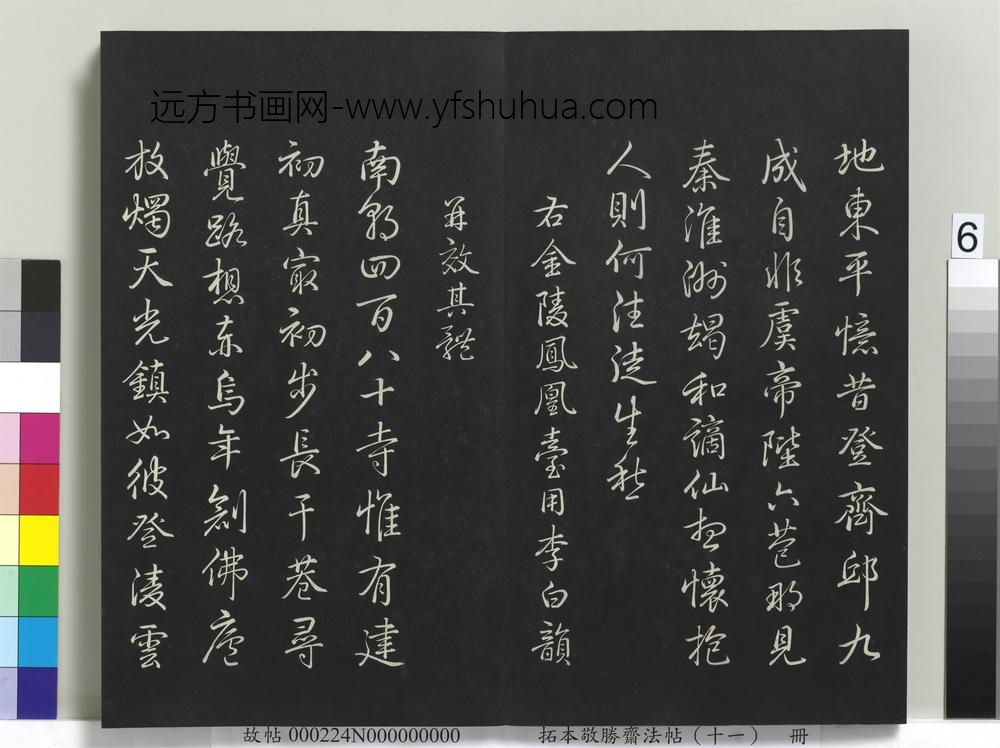 远方书画网-www.yfshuhua.com
地東平憶昔登齊邱九
成自非虞帝陛六苞那見
秦淮洲踢和謫仙想懷抱
人則何注
生愁
右金陵鳳凰臺用李白韻
并效其體
南朝四百八十寺惟有建
初真最初步長干巷尋
覺路想赤烏年創佛廬
放燭天光鎮如彼登淩雲
6
故帖 000224N000000000
拓本敬勝齋法帖（十一） 冊